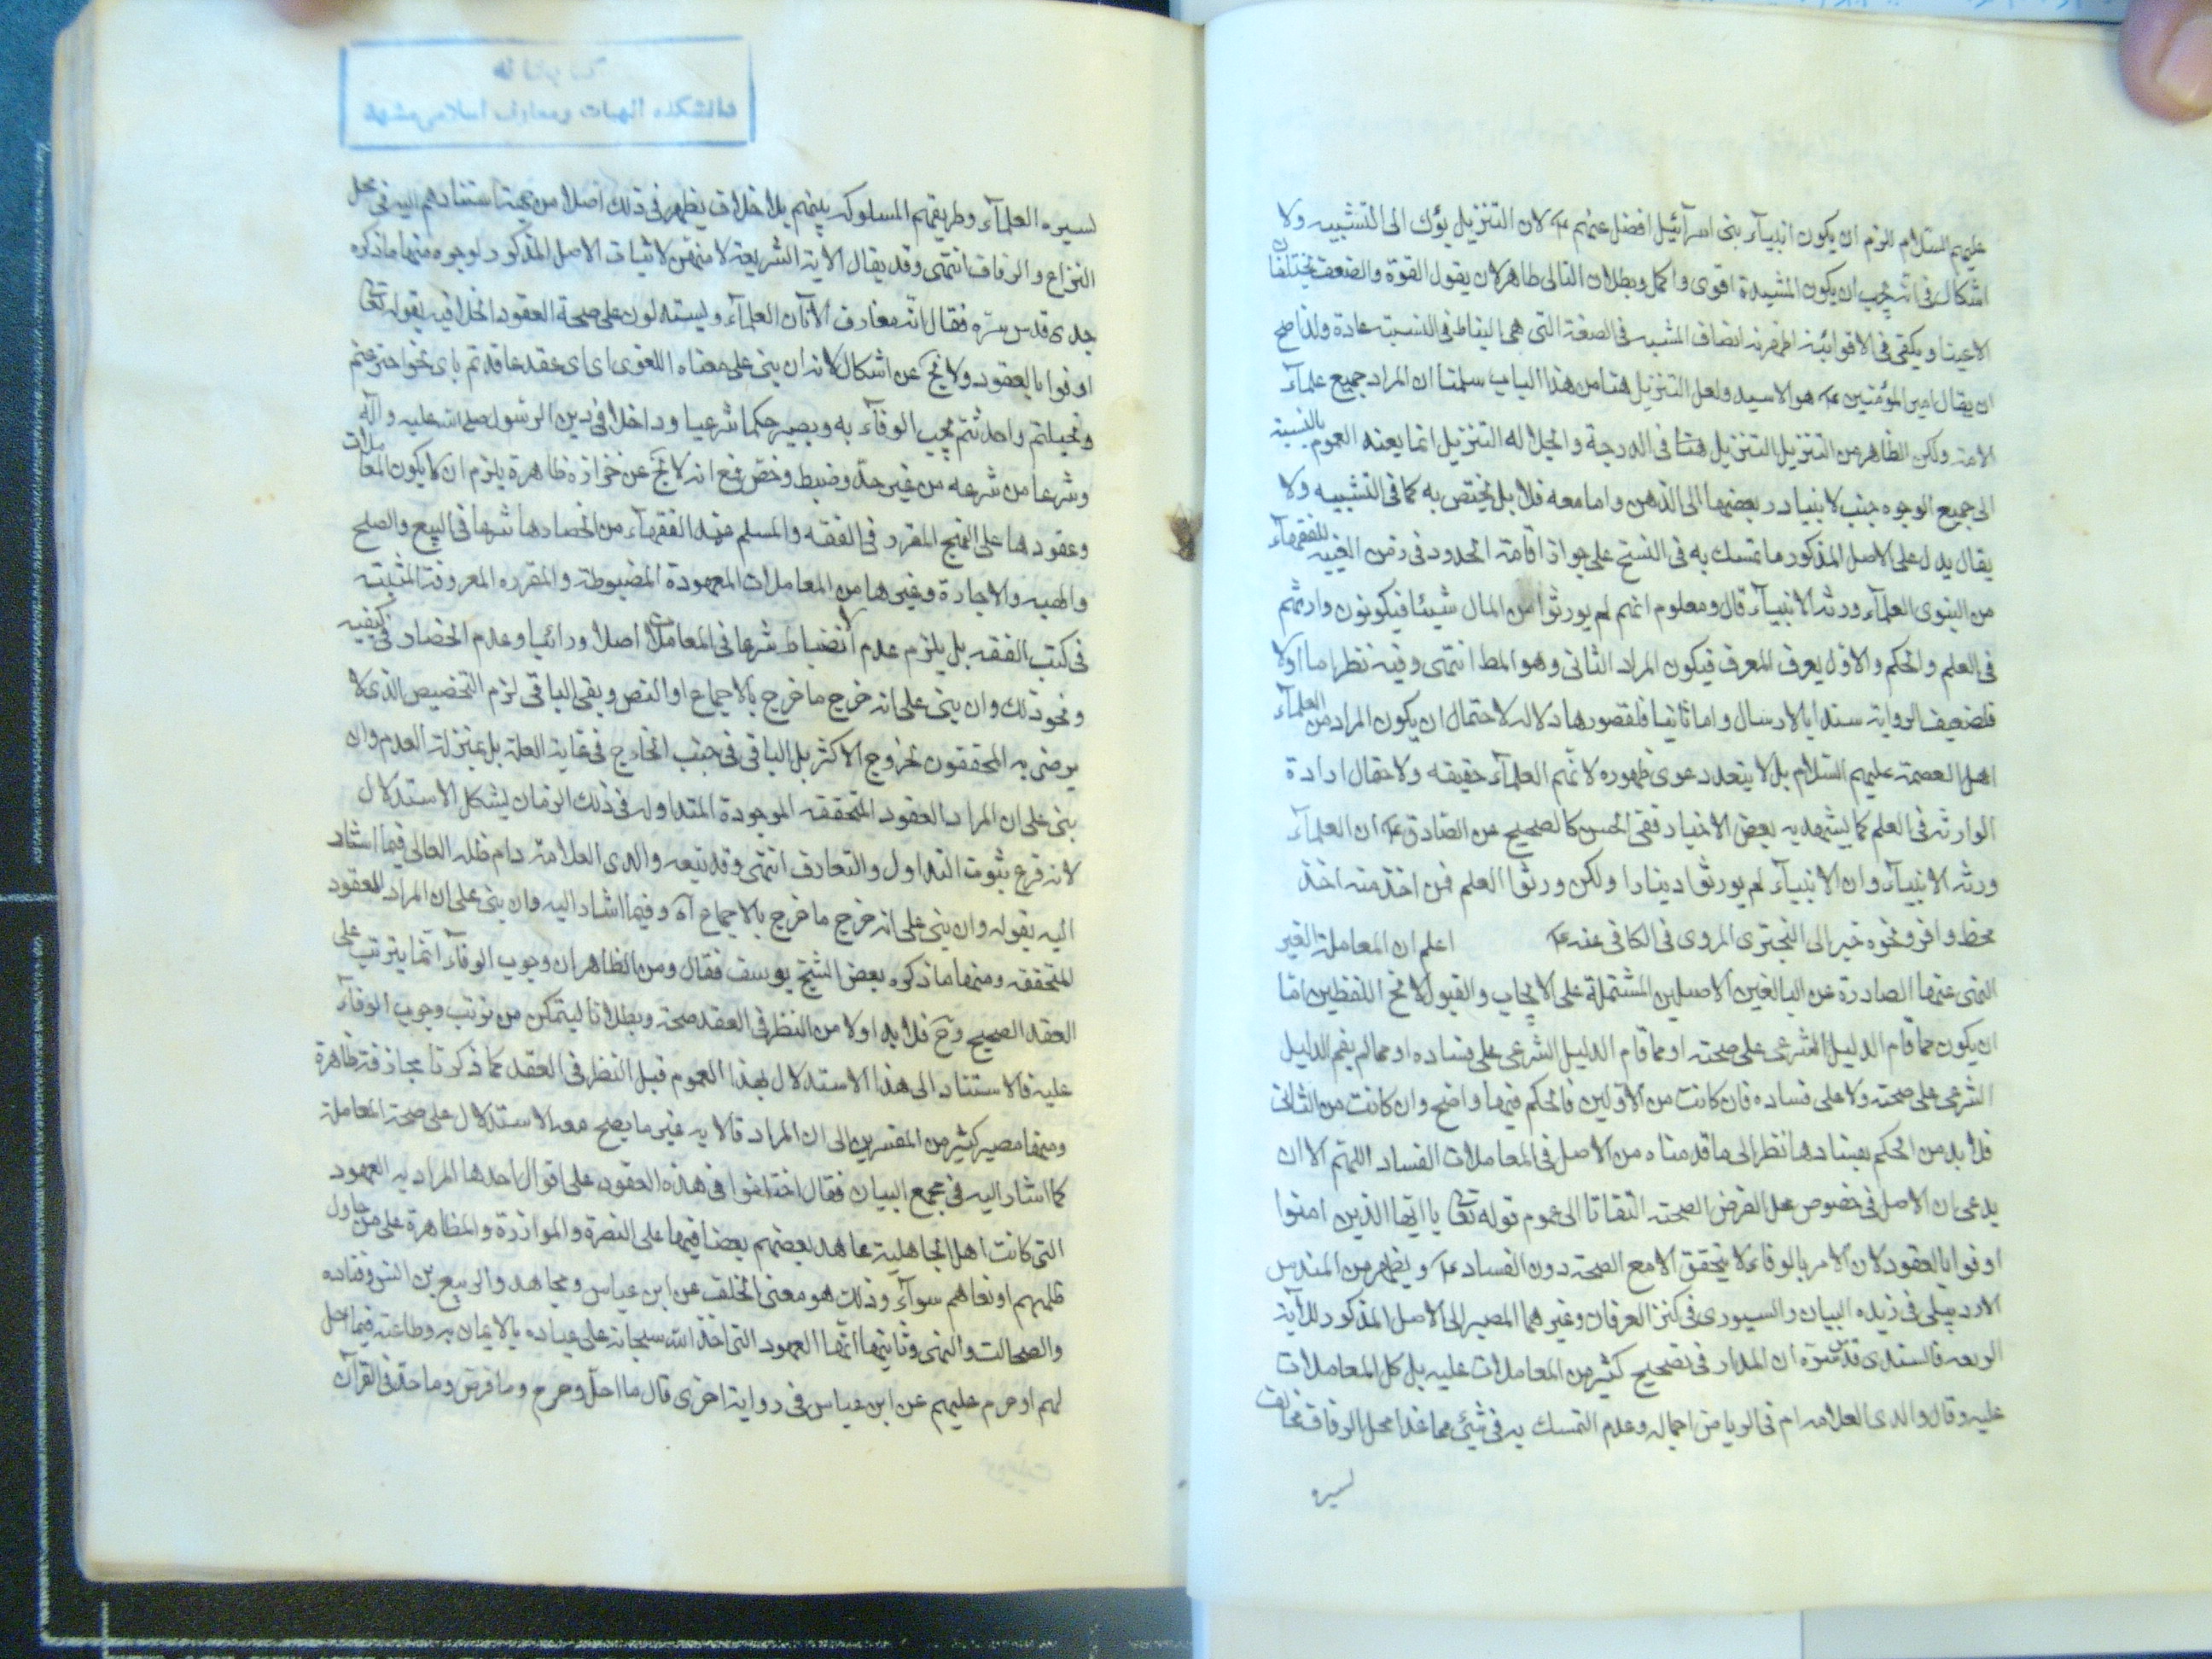 عليهم السلام للزم ان يكون انبياء بنى اسرائيل افضل عنهم لان التنزيل يؤل الى التشبيه ولا
اشكال فى انه يجب ان يكون المشبه اقوى واكمل وبطلان التالى ظاهر لان يقول القوة والضعف يختلف
ان يقال امير المؤمنين هو الاسد ولعل التنزيل هنا من هذا الباب سلمنا ان المراد جميع علماء
الامة ولكن الظاهر من التنزيل التنزيل هنا فى الدرجة والجلاله التنزيل انما يفيد العموم بالنسبة
الى جميع الوجوه حيث لا يتبادر بعضها الى الذهن واما معه فلا بل يختص به كما فى التشبيه ولا
يقال يدل على الاصل المذكور ما تمسك به فى التنقيح على جواز اقامة الحدود فى زمن الغيبه للفقهاء
من النبوى العلماء ورثه الانبياء قال ومعلوم انهم لم يورثوا من المال شيئا فيكونون وارثهم
فى العلم والحكم والاول يعرف المعرف فيكون المراد الثانى وهو المط انتهى وفيه نظر اما اولا
فلضعيف الرواية سندا بالارسال واما ثانيا فلقصورها دلاله لاحتمال ان يكون المراد من العلماء
اهل العصمة عليهم السلام بل لا يتعدد دعوى ظهوره لانهم العلماء حقيقه ولاحتمال ارادة
الوارثه فى العلم كما يشهد به بعض الاخبار ففى الحسن كالصحيح عن الصادق ان العلماء
ورثه الانبياء وان الانبياء لم يورثوا دينارا ولكن ورثوا العلم فمن اخذ منه اخذ
بحظ وافر ونحوه خبر ابى البخترى المروى فى الكافى عنه اعلم ان المعاملة الغير
النهى عنها الصادرة عن البالغين الاصيلين المشتملة على الايجاب والقبول اللفظين اما
ان يكون مما قام الدليل الشرعى على صحته او مما قام الدليل الشرعى على فساده او مما لم يقم الدليل
الشرعى على صحته ولا على فساده فان كانت من الاولين فالحكم فيها واضح وان كانت من الثالث
فلا بد من الحكم بفسادها نظرا الى ما قدمناه من الاصل فى المعاملات الفساد اللهم الا ان
يدعى ان الاصل فى خصوص محل الفرض الصحة التفاتا الى عموم قوله تعا يا ايها الذين امنوا
اوفوا بالعقود لان الامر بالوفاء لا يتحقق الا مع الصحة دون الفساد ويظهر من المقدس
الاردبيلى فى زبده البيان والسيورى فى كنز العرفان وغيرهما المصير الى الاصل المذكور للاية
قدس سره ان المدار فى تصحيح كثير من المعاملات عليه بل كل المعاملات
عليه وقال والدى العلامه دام فى الرياض اجماله وعدم التمسك به فى شئ مما عدا محل الوفاق مخالف
لسيره
لسيره العلماء وطريقتهم المسلوكه بينهم بلا خلاف يظهر فى ذلك اصلا من جهة استنادهم اليه فى محل
النزاع والوفاق انتهى وقد يقال الاية الشريعة لا منهض لاثبات الاصل المذكور لوجوه منها ما ذكره
جدى قدس سره فقال انه معارف الان العلماء ويستدلون على صحة العقود الخلافيه بقوله تعا
اوفوا بالعقود ولا يخ عن اشكال لانه ان بنى على معناه اللغوى اى اى عقد عاقدتم باى نحو اخترعتم
وتخيلتم واحدثتم يجب الوفاء به ويصير حكما شرعيا وداخلا فى دين الرسول صلى الله عليه وآله
وشرعا من شرعه من غير حد وضبط وخص فمع انه لا يخ عن حزازة ظاهرة يلزم ان لا يكون المعاملات
وعقودها على النهج المقرر فى الفقه والمسلم عند الفقهاء من انحصارها شرعا فى البيع والصلح
والهبه والاجارة وغيرها من المعاملات المعهودة المضبوطة والمقرره المعروفة المثبتة
فى كتب الفقه بل يلزم عدم انضباط شرعا فى المعاملات اصلا وراسا وعدم انحصار فى كيفيه
ونحو ذلك وان بنى على انه خرج ما خرج بالاجماع او النص وبقى الباقى لزم التخصيص الذى لا
يرضى به المحققون لخروج الاكثر بل الباقى فى جنب الخارج فى غاية القلة بل بمنزلة العدم وان
بنى على ان المراد العقود المتحققه الموجودة المتداوله فى ذلك الزمان ليشكل الاستدلال
لانه فرع ثبوت التداول والتعارف انتهى وقد تبعه والدى العلامة دام ظله العالى فيما اشار
اليه بقوله وان بنى على انه خرج ما خرج بالاجماع اه وفيما اشار اليه وان بنى على ان المراد العقود
المتحققه ومنها ما ذكره بعض الشيخ يوسف فقال ومن الظاهر ان وجوب الوفاء انما يترتب على
العقد الصحيح وح فلا بد اولا من النظر فى العقد صحة وبطلانا ليتمكن من ترتب وجوب الوفاء
عليه فالاستناد الى هذا الاستدلال بهذا العموم قبل النظر فى العقد كما ذكرنا مجازفة ظاهرة
ومنها مصير كثير من المفسرين الى ان المراد فالايه غير ما يصح معه الاستدلال على صحة المعاملة
كما اشار اليه فى مجمع البيان فقال اختلفوا فى هذه العقود على اقوال احدها المراد به العهود
التى كانت اهل الجاهلية عاهد بعضهم بعضا فيها على النصرة والموازرة والمظاهرة على من حاول
ظلمهم او بغاهم سواء وذلك هو معنى الحلف عن ابن عباس ومجاهد والربيع بن انس وقتاده
والضحاك والسدى وثانيها انها العهود التى اخذ الله سبحانه على عباده بالايمان به وطاعته فيما احل
لهم او حرم عليهم عن ابن عباس فى رواية اخرى قال ما احل وحرم وما فرض وما حد فى القرآن